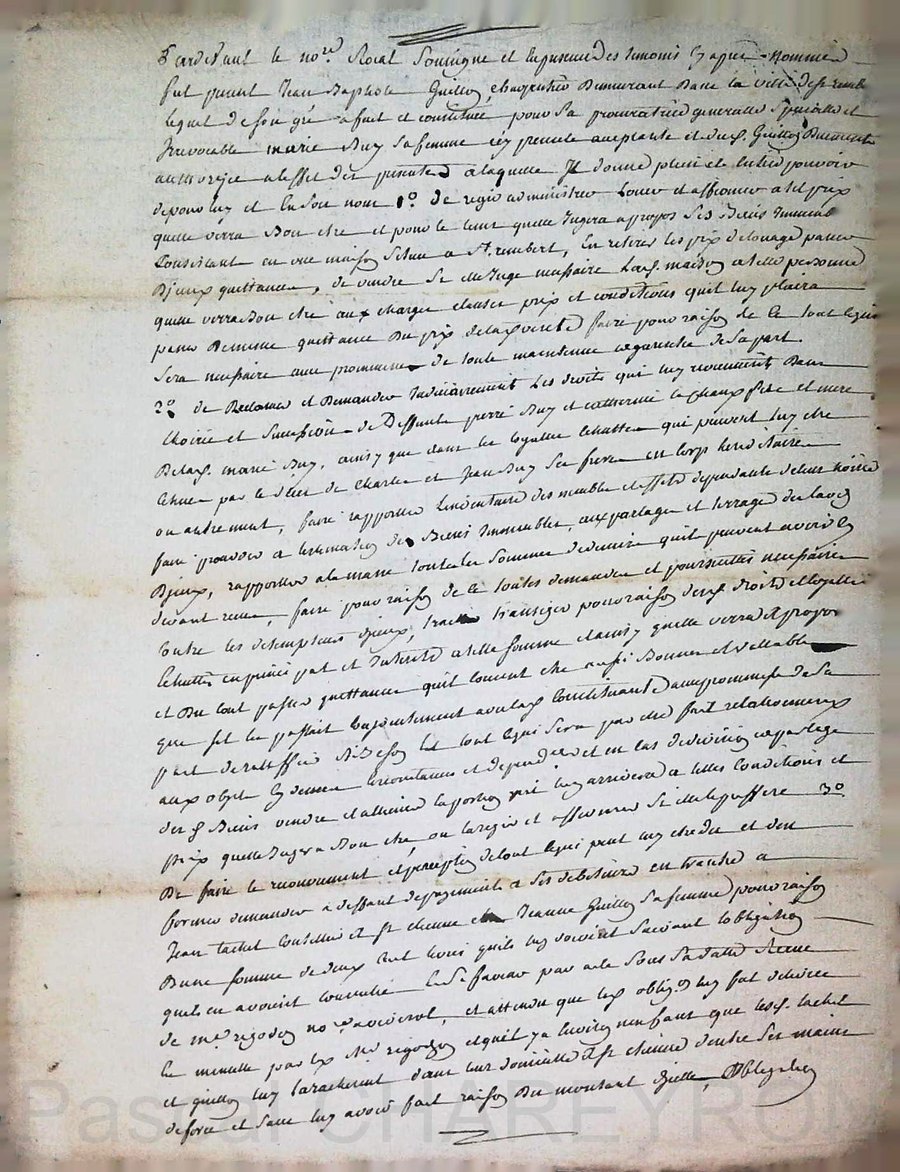 Pardevant le no.re Royal Soussigné et en presence des temoins cy apres nommés
fut present Jean Baptiste Guillon, demeurant Dans la ville de st rembt
lequel de son gré a fait et constitué pour sa procuratrice generalle specialle et
Irrevocable marie Buy sa femme icy presente acceptante et dud. Guillon Duement
authorizée a leffet des presentes a laquelle Il donne plein et entier pouvoir
de pour luy et En son nom 1º. de regir administrer Louer et affermer a tel prix
quelle verra Bon etre et pour le tems quelle Jugera a propos ses Biens Immeub
Consistant en une maison Scituée a St. rembert, En retirer les prix de louage passer
Dyceux quittances, de vendre Si elle Juge necessaire Lad. maison a telle personne
quelle verra Bon etre aux charges clauses prix et conditions quil luy plaira
passer Bonne quittance Du prix de la vente faire pour raison de ce tout ce qui
Sera necessaire avec promesse de toute maintenue et garantie de sa part.
2º. de Reclamer et Demander Judiciairement Les droits qui luy reviennent Dans
lhoirie et Succession de Deffunts pierre Buy et catherine la chaux pere et mere
De lad. marie Buy, ainsy que dans les legalles echuttes qui peuvent luy etre
echues par le deces de Charles et Jean Buy ses freres en corps hereditaire
ou autrement, faire rapporter Linventaire des meubles et effets dependants de leur hoirie
faire proceder a lestimation des Biens Immeubles, aux partages et tirrage des lots
Dyceux, rapporter a la masse toutes les Sommes de deniers quils peuvent avoir cy
devant receu, faire pour raison de ce toutes demandes et poursuittes necessaires
Contre les detempteurs dyceux, traitter transiger pour raison desd. droits et legalles
Echuttes en principal et Interets a telle somme et ainsy quelle verra a propos
et Du tout passer quittance qu'il consent etre aussi Bonne et vallable
que sil les passait conjointement avec lad. Constituante avec promesse de sa
part de ratiffier Si Besoin Est tout ce qui Sera par elle fait relativement
aux objets cy dessus circonstances et dependances et en cas de division et partage
des d. Biens vendre et alliener la portion qui luy arrivera a telles Conditions et
prix quelle Jugera Bon etre ou la regir et affermer Si elle le prefere 3º.
De faire le recouvrement et perception de tout ce qui peut luy etre du et den
former demandes a deffaut de payement a Ses debiteurs
Jean tachet Coutellier a st Etienne et a Jeanne Guillon Sa femme pour raison
Dune somme de deux cent livres quils luy doivent Suivant lobligation
quils en avoient consentie En Sa faveur par acte Sous Sa datte Receue
de me. rigodon no.re, et attendu que lad. oblig.on luy fut delivrée
En minutte par led. Me rigodon et quil y a environ neuf ans que lesd. tachet
et guillon luy larracherent dans leur domicille a st Etienne dentre Ses mains
de force et Sans luy avoir fait raison Du montant dycelle, obligation
Pascal CHAREYRON